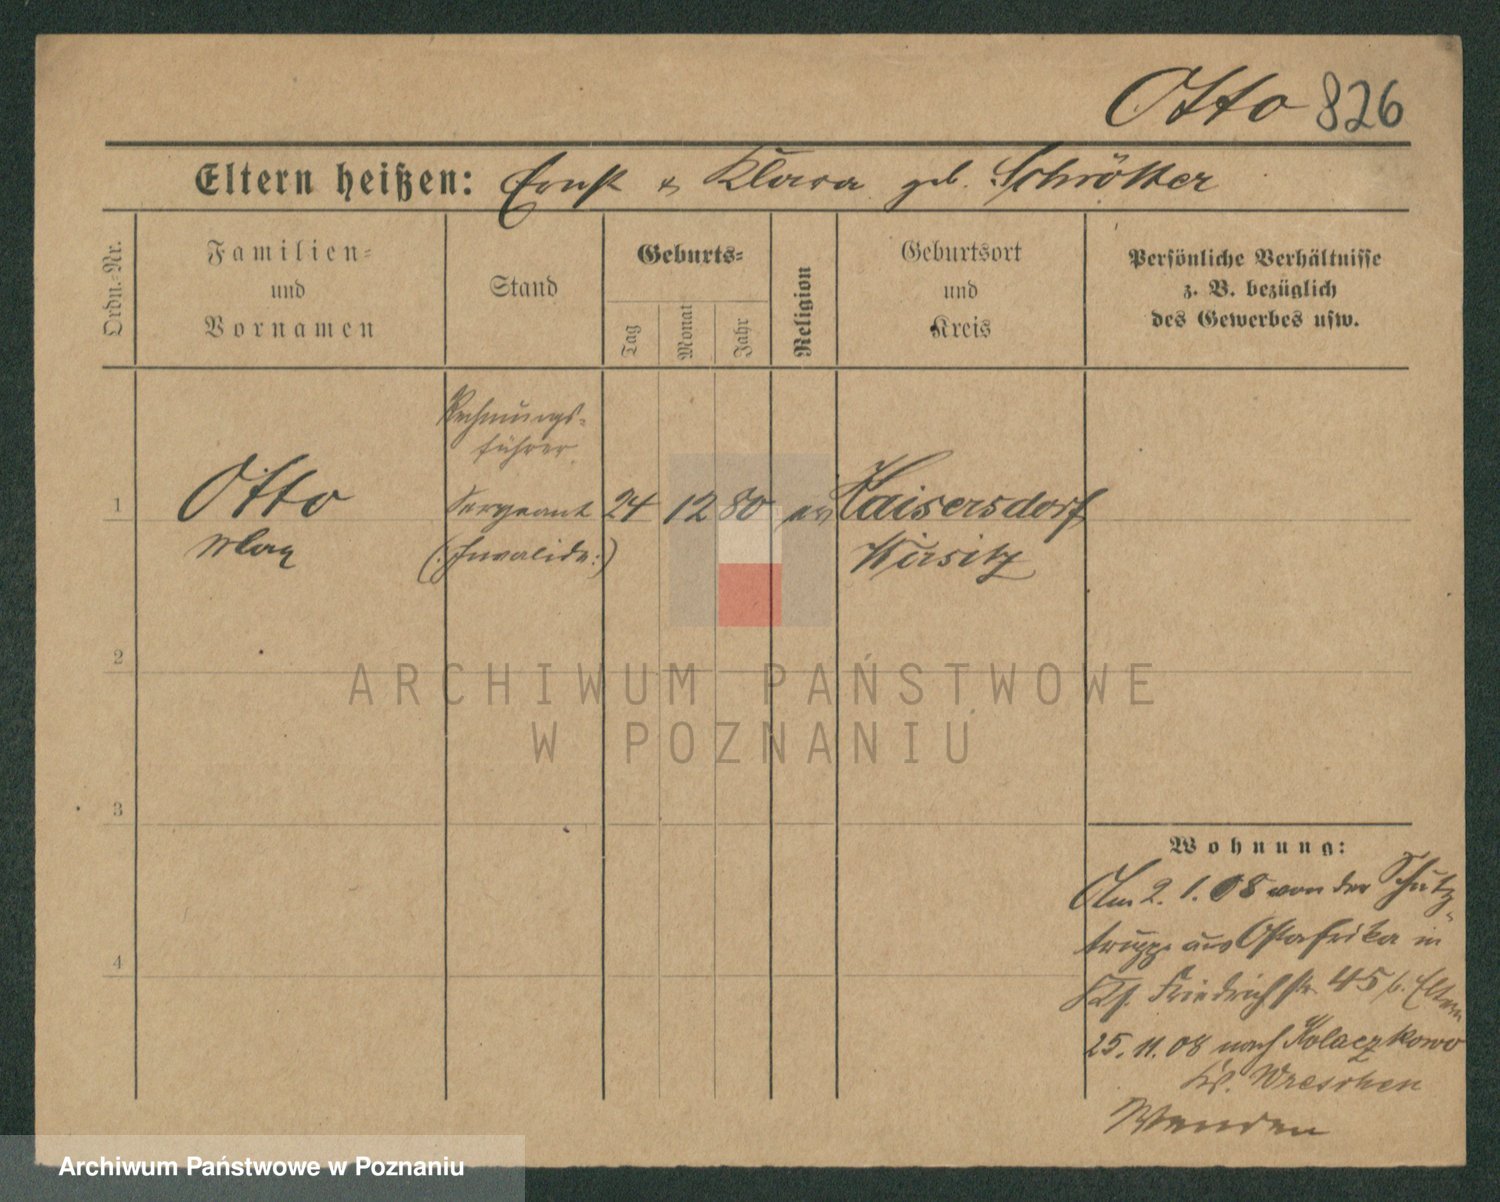 Otto 826
Eltern heißen: Ernst & Klara geb. Schrötter
Ordn.=Nr.
Familien=
und
Vornamen
Stand
Geburts=
Tag
Monat
Jahr
Religion
Geburtsort
und
Kreis
Persönliche Verhältnisse
z. B. bezüglich
des Gewerbes usw.
Rechnungs-
führer
1 Otto Sergeant 24 12 80 ev Kaisersdorf
Max (:Invalide:) Wirsitz
2
3
4
Wohnung:
Am 2. 1. 08 von der Schutz-
truppe aus Ostafrika in
Friedrichstr 45 b. Eltern
25. 11. 08 nach Kolaczkowo
Kr. Wreschen
Wenden
ARCHIWUM PAŃSTWOWE
W POZNANIU
Archiwum Państwowe w Poznaniu